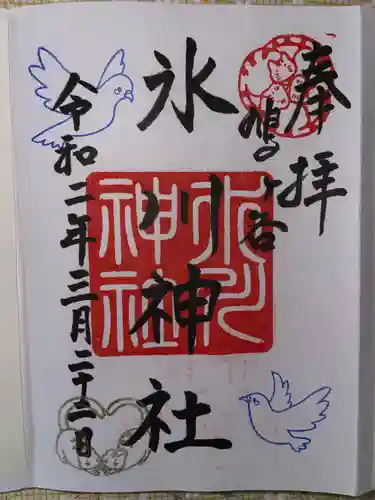 奉拝
鳩ヶ谷
氷川神社
氷川
神社
令和二年三月二十二日